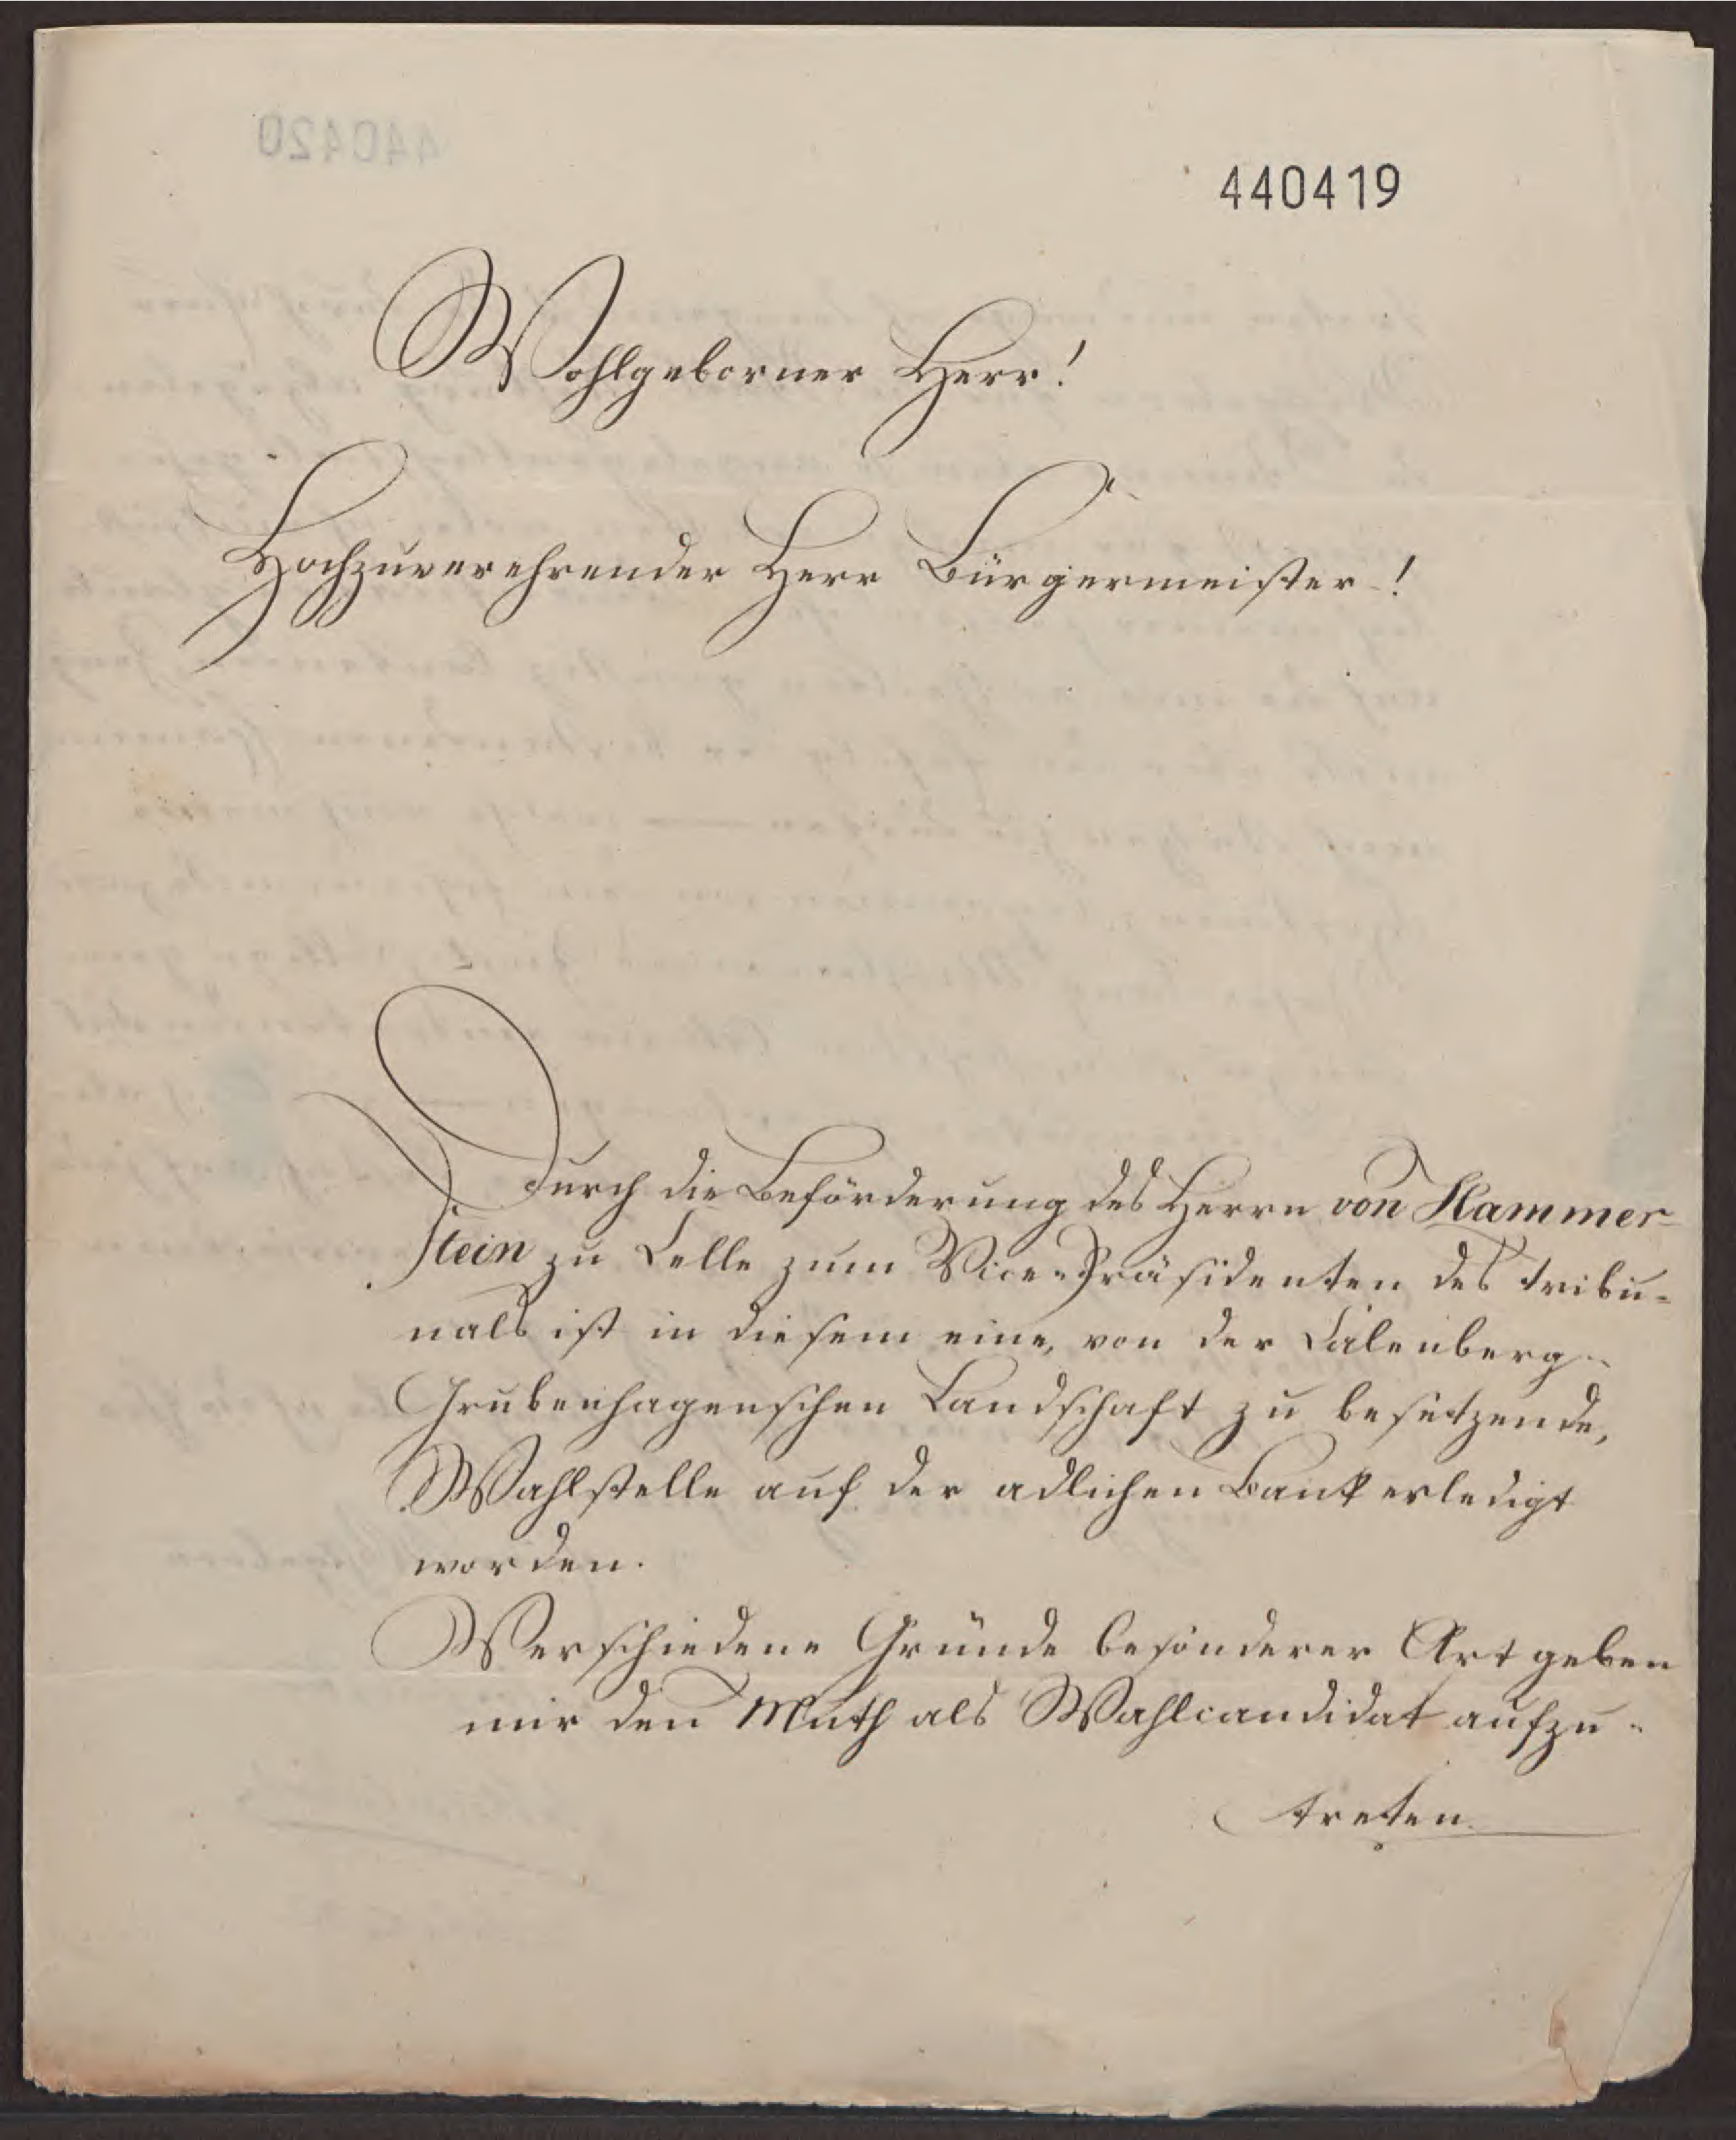 440419
Wohlgeborner Herr!
Hochzuverehrender Herr Bürgermeister!
Durch die Beförderung des Herrn von Hammer-
stein zu Celle zum Vice-Präsidenten des Tribu-
nals ist in diesem eine, von der Calenberg-
Grubenhagenschen Landschaft zu besetzende,
Wahlstelle auf der adlichen Bank erledigt
worden.
Verschiedene Gründe besonderer Art geben
mir den Muth als Wahlcandidat aufzu-
treten